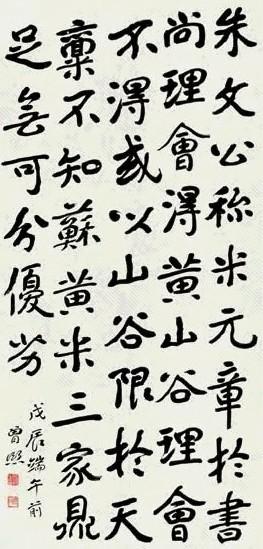 朱文公称米元章於書
尚理會淂黄山谷理會
不淂或以山谷限於天
稟不知蘇黄米三家鼎
足無可分優劣
戊辰端午前
曾熙